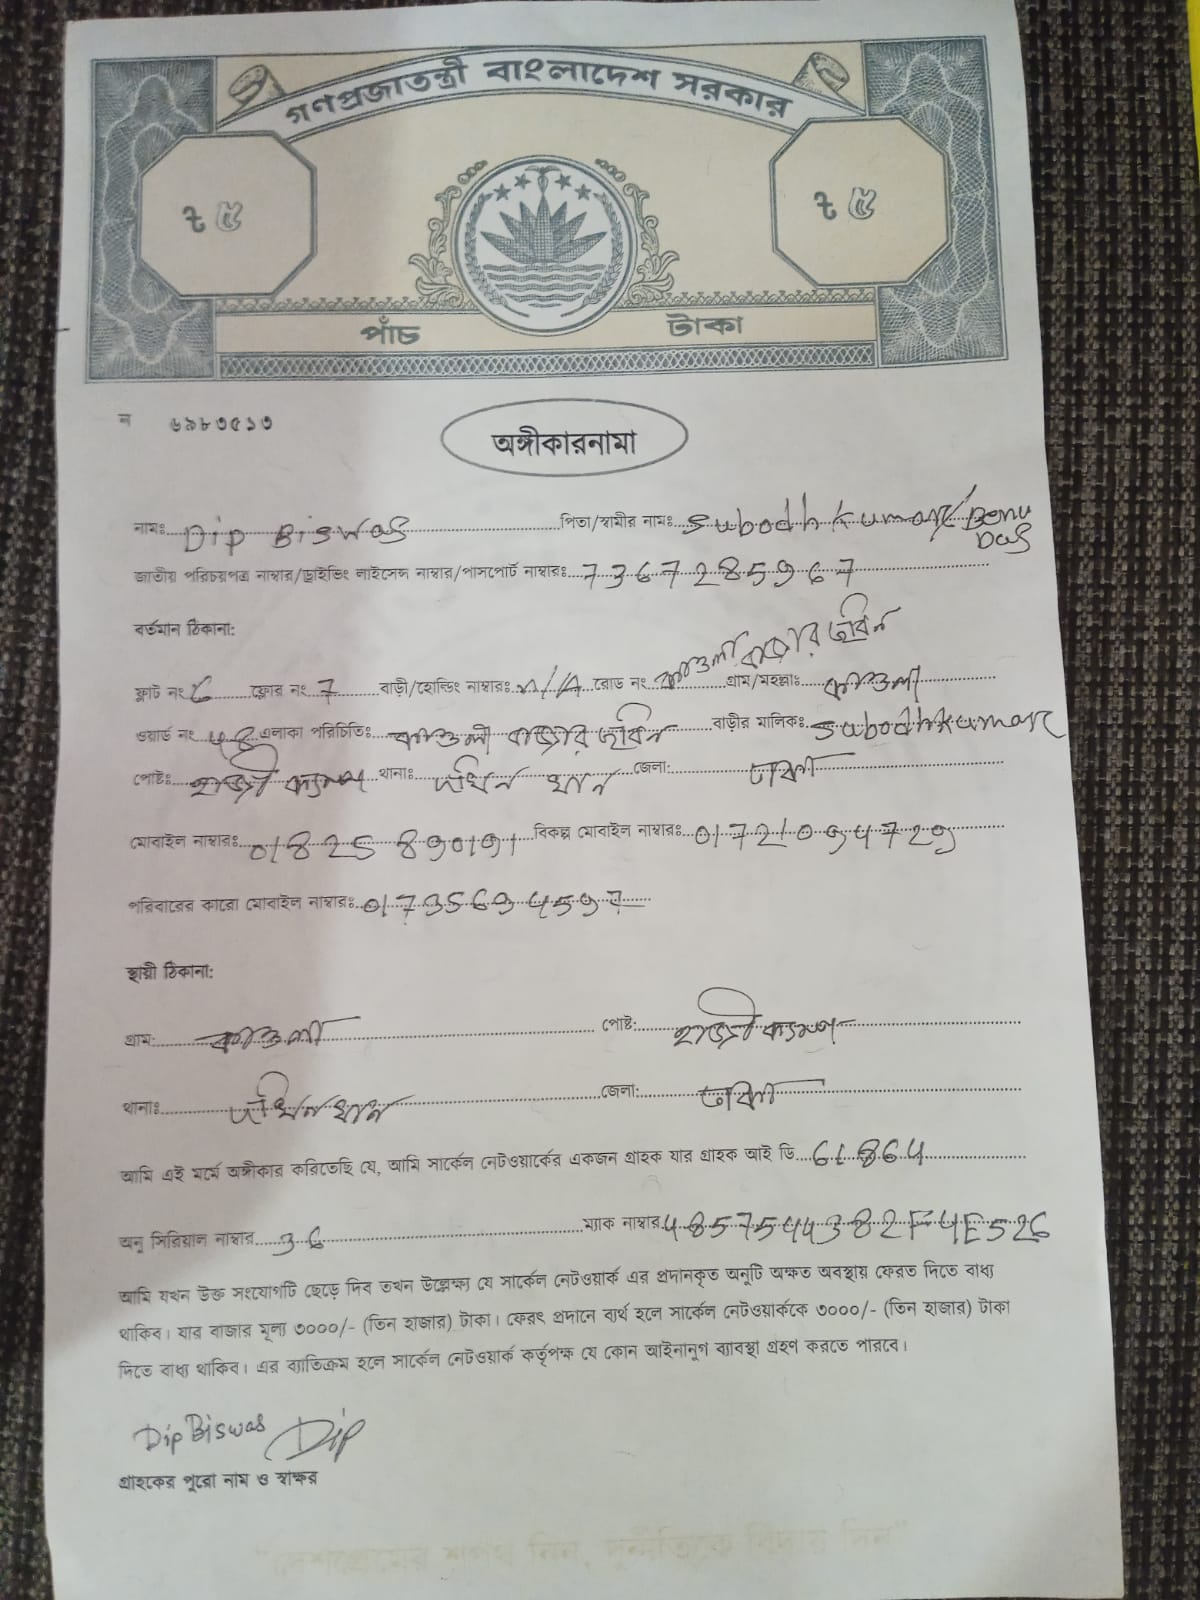 গণপ্রজাতন্ত্রী বাংলাদেশ সরকার
৳ ৫ ৳ ৫
পাঁচ টাকা
ন ৬৯৮৩৫১৩
অঙ্গীকারনামা
নামঃ Dip Biswas পিতা/স্বামীর নামঃ Subodh Kumar/Benu
Das
জাতীয় পরিচয়পত্র নাম্বার/ড্রাইভিং লাইসেন্স নাম্বার/পাসপোর্ট নাম্বারঃ 7367285967
বর্তমান ঠিকানা:
ফ্লাট নং 6 ফ্লোর নং 7 বাড়ী/হোল্ডিং নাম্বারঃ N/A রোড নং কাওলা বাজার গ্রাম/মহল্লাঃ কাওলা
ওয়ার্ড নং এলাকা পরিচিতিঃ কাওলা বাজার বাড়ীর মালিকঃ Subodh Kumar
পোষ্টঃ হাজী ক্যাম্প থানাঃ দক্ষিন খান জেলা: ঢাকা
মোবাইল নাম্বারঃ 01825890191 বিকল্প মোবাইল নাম্বারঃ 01721094729
পরিবারের কারো মোবাইল নাম্বারঃ 0173569459
স্থায়ী ঠিকানা:
গ্রাম: কাওলা পোষ্ট: হাজী ক্যাম্প
থানাঃ দক্ষিনখান জেলা: ঢাকা
আমি এই মর্মে অঙ্গীকার করিতেছি যে, আমি সার্কেল নেটওয়ার্কের একজন গ্রাহক যার গ্রাহক আই ডি 61864
অনু সিরিয়াল নাম্বার 36 ম্যাক নাম্বার 4857544382F4E526
আমি যখন উক্ত সংযোগটি ছেড়ে দিব তখন উল্লেক্ষ্য যে সার্কেল নেটওয়ার্ক এর প্রদানকৃত অনুটি অক্ষত অবস্থায় ফেরত দিতে বাধ্য
থাকিব। যার বাজার মূল্য ৩০০০/- (তিন হাজার) টাকা। ফেরৎ প্রদানে ব্যর্থ হলে সার্কেল নেটওয়ার্ককে ৩০০০/- (তিন হাজার) টাকা
দিতে বাধ্য থাকিব। এর ব্যাতিক্রম হলে সার্কেল নেটওয়ার্ক কর্তৃপক্ষ যে কোন আইনানুগ ব্যাবস্থা গ্রহণ করতে পারবে।
Dip Biswas Dip
গ্রাহকের পুরো নাম ও স্বাক্ষর
"দেশপ্রেমের শপথ নিন, দুর্নীতিকে বিদায় দিন"